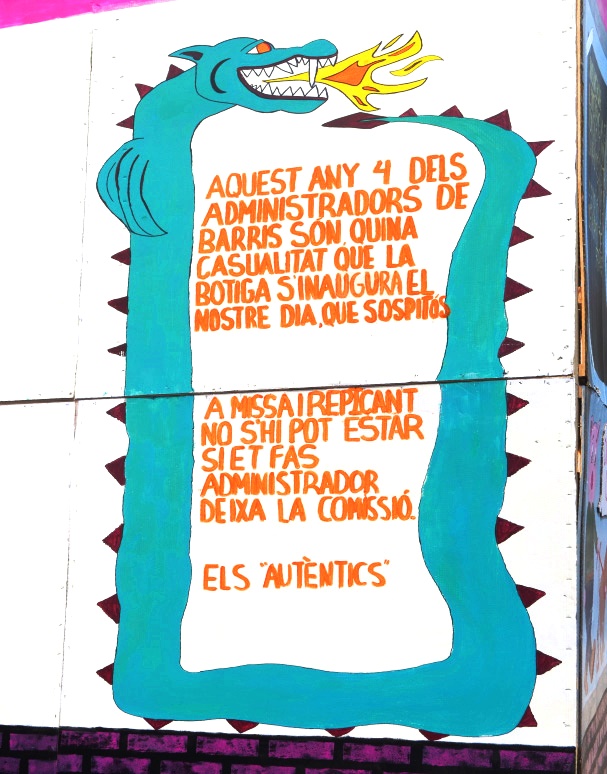 AQUEST ANY 4 DELS
ADMINISTRADORS DE
BARRIS SÓN, QUINA
CASUALITAT QUE LA
BOTIGA S'INAUGURA EL
NOSTRE DIA, QUE SOSPITÓS
A MISSA I REPICANT
NO S'HI POT ESTAR
SI ET FAS
ADMINISTRADOR
DEIXA LA COMISSIÓ.
ELS "AUTÈNTICS"